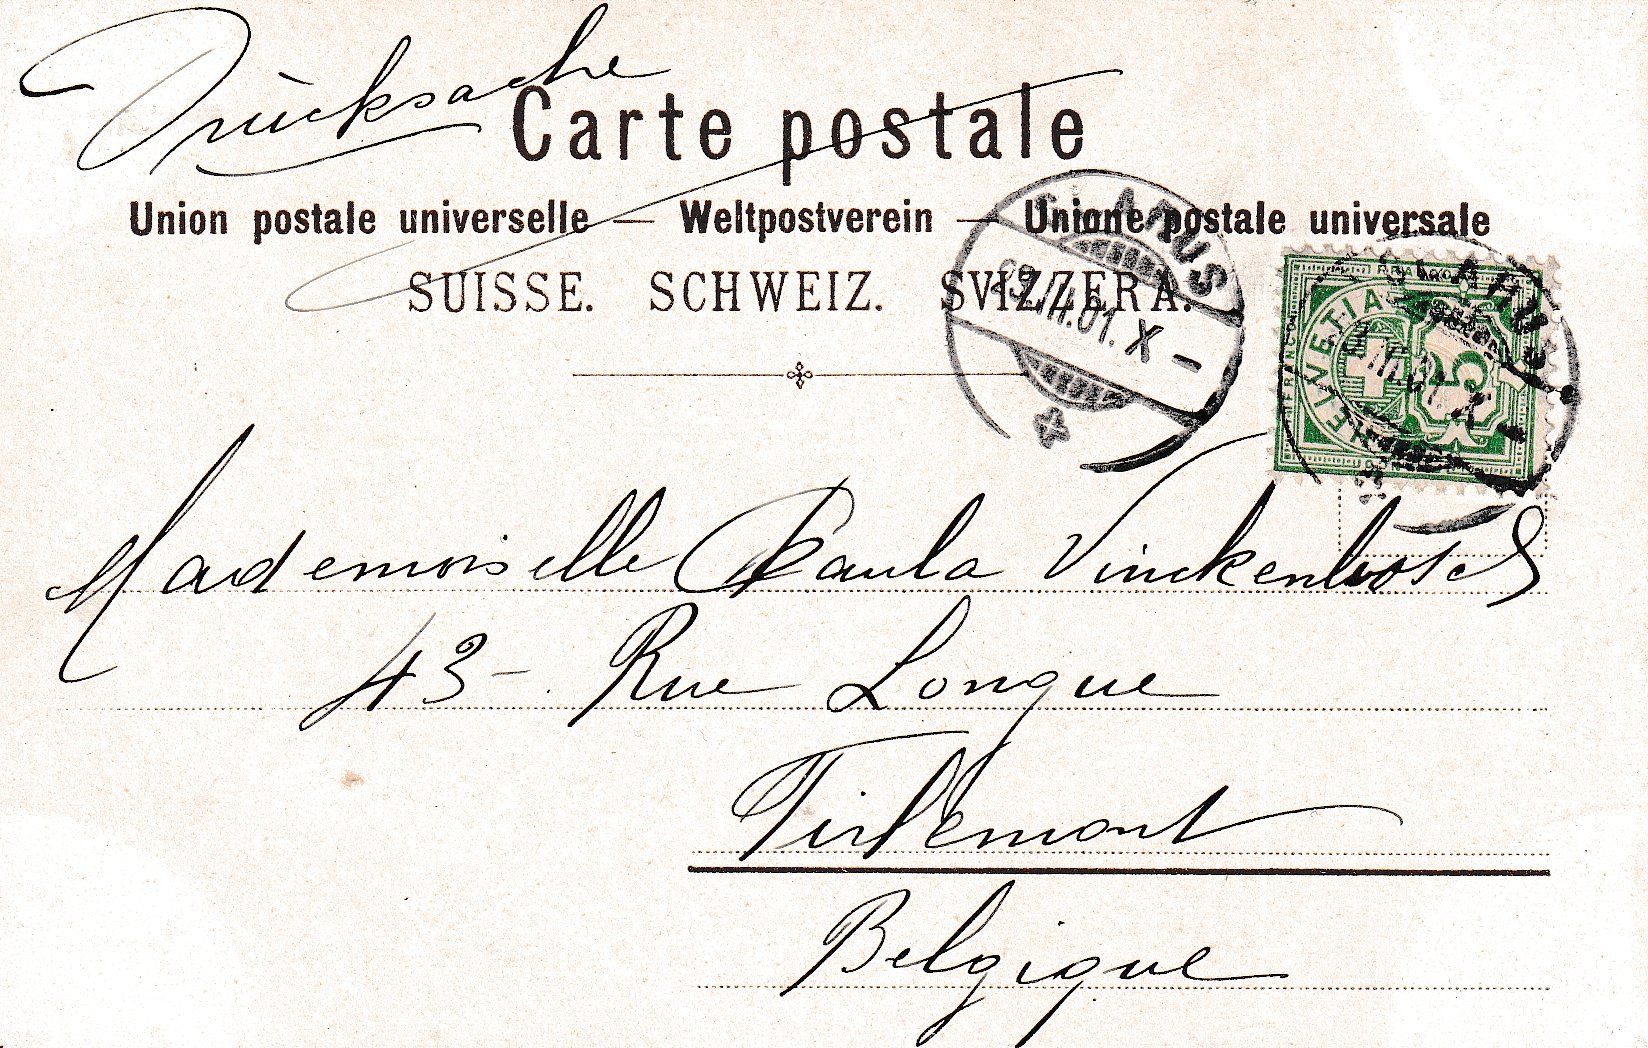 Drucksache
Carte postale
Union postale universelle — Weltpostverein — Unione postale universale
SUISSE. SCHWEIZ. SVIZZERA.
GLARUS
29.VII.01.X–
HELVETIA
5
Mademoiselle Paula Vinckenbosch
43 – Rue Longue
Tirlemont
Belgique